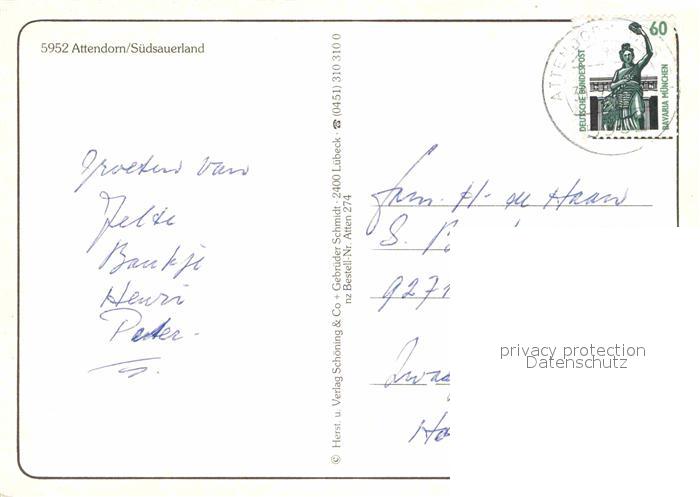 5952 Attendorn/Südsauerland
Groeten van
Jelte
Baukje
Henri
Pieter.
© Herst. u. Verlag Schöning & Co + Gebrüder Schmidt · 2400 Lübeck · ☎ (0451) 310 310 0
nz Bestell-Nr. Atten 274
DEUTSCHE BUNDESPOST
60
BAVARIA MÜNCHEN
ATTENDORN
Fam. H. de Haan
S.
9271
Zwaa
Ho
privacy protection
Datenschutz